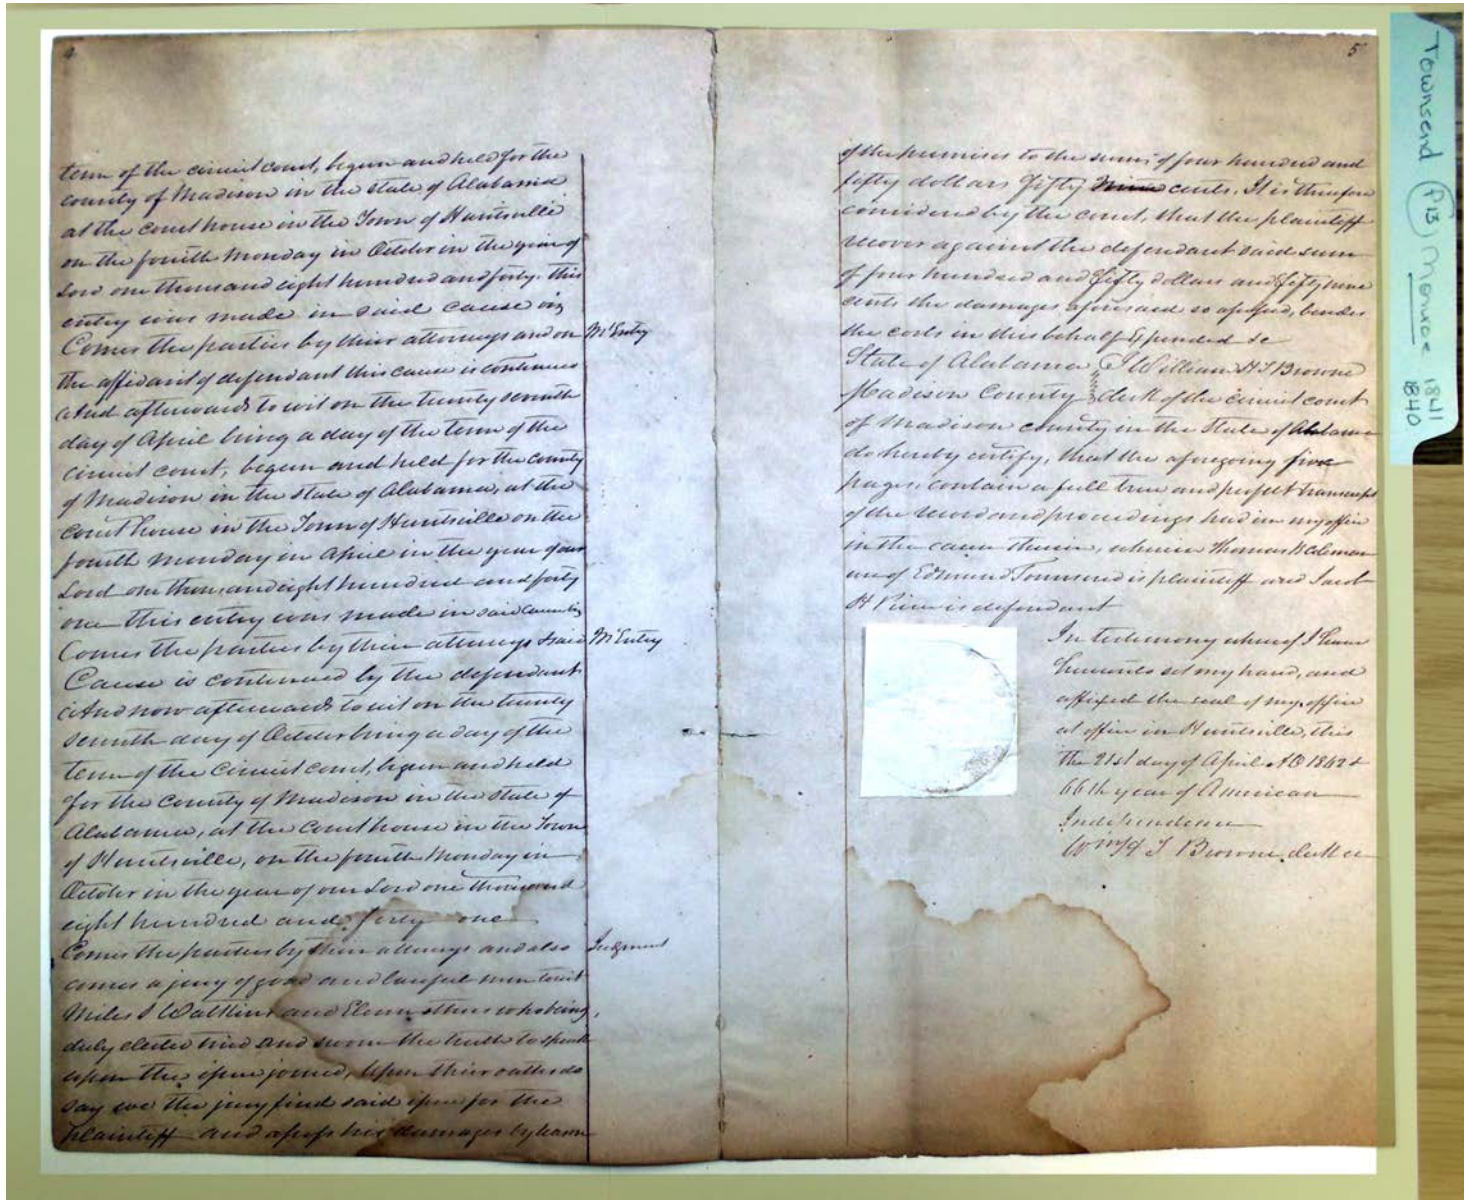 4
term of the circuit court, begun and held for the
county of Madison in the state of Alabama
at the court house in the Town of Huntsville
on the fourth Monday in October in the year of
Lord one thousand eight hundred and forty. this
entry was made in said cause viz
Comes the parties by their attorneys and on
the affidavit of defendant this cause is continued
And afterwards to wit on the twenty seventh
day of April being a day of the term of the
circuit court, begun and held for the county
of Madison in the state of Alabama, at the
court house in the Town of Huntsville on the
fourth Monday in April in the year of our
Lord one thousand eight hundred and forty
one this entry was made in said cause viz
Comes the parties by their attorneys & said
Cause is continued by the defendant
And now afterwards to wit on the twenty
seventh day of October being a day of the
term of the Circuit court, begun and held
for the County of Madison in the state of
Alabama, at the Court house in the Town
of Huntsville, on the fourth Monday in
October in the year of our Lord one thousand
eight hundred and forty one
Comes the parties by their attorneys and also
comes a jury of good and lawful men to wit
Miles S Watkins and Eleven others who being,
duly elected tried and sworn the truth to speak
upon the issue joined, Upon their oaths do
say we the jury find said issue for the
plaintiff and assess his damages by reason
Mo Entry
Mo Entry
Judgment
5
of the premises to the sum of four hundred and
fifty dollars fifty nine cents. It is therefore
considered by the court, that the plaintiff
recover against the defendant said sum
of four hundred and fifty dollars and fifty nine
cents the damages aforesaid so assessed, besides
the costs in this behalf Expended &c
State of Alabama I William H T Browne
Madison County clerk of the circuit court
of Madison county in the State of Alabama
do hereby certify, that the aforegoing five
pages, contain a full true and perfect transcript
of the record and proceedings had in my office
in the cause therein, wherein Thomas B Coleman
use of Edmund Townsend is plaintiff and Jacob
H Pierce is defendant
In testimony whereof I have
hereunto set my hand, and
affixed the seal of my office
at office in Huntsville, this
the 21st day of April AD 1842 &
66th year of American
Independence
Wm H T Browne clerk
Townsend (P13) Monroe 1841
1840